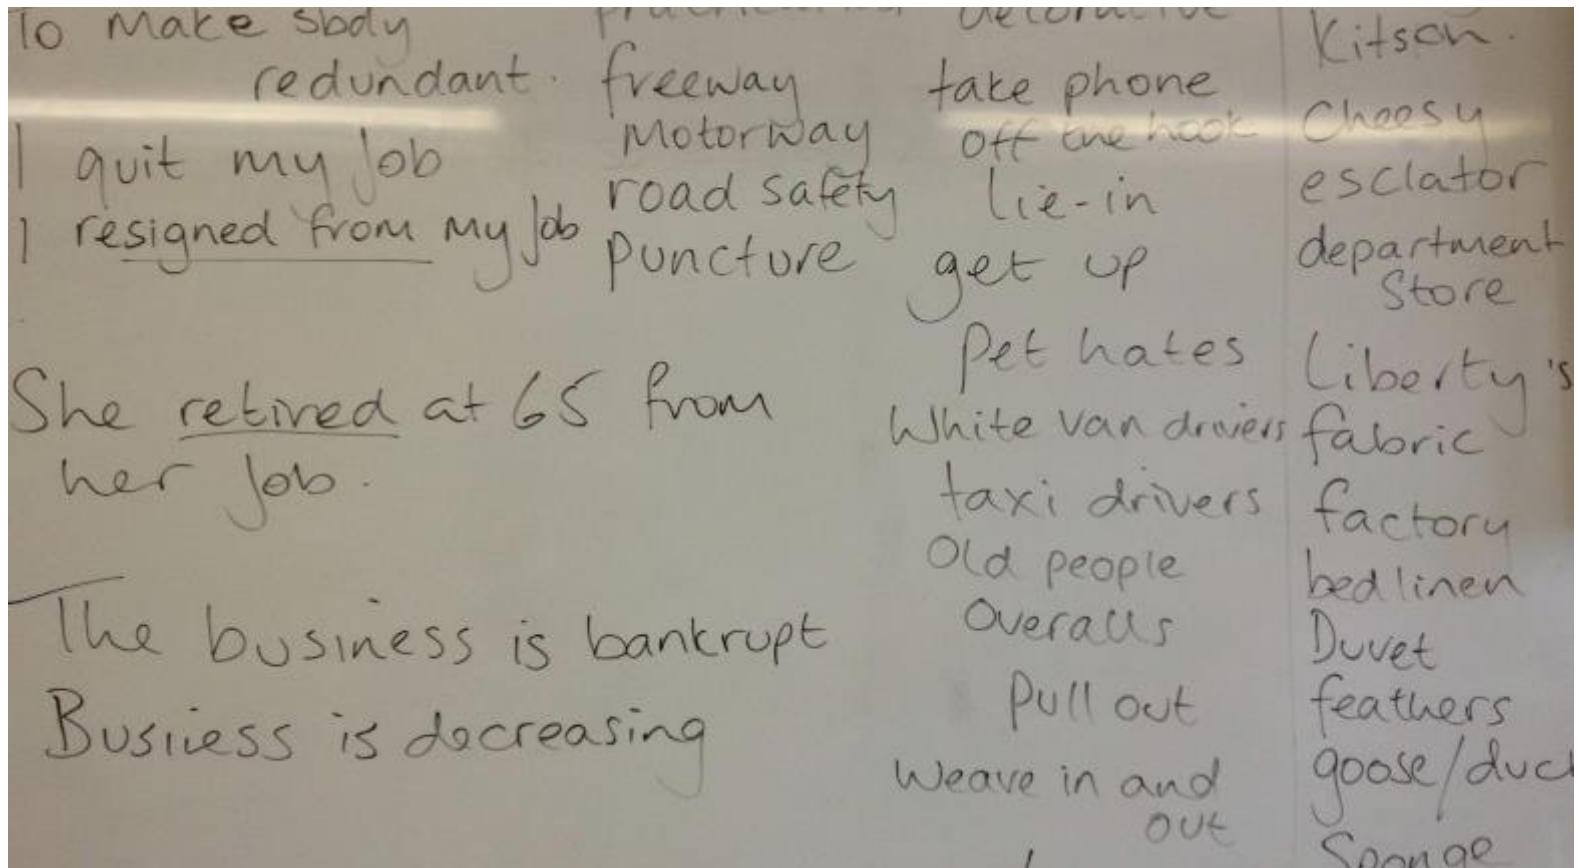 To make sbody
redundant.
I quit my job
I resigned from my job
She retired at 65 from
her job.
The business is bankrupt
Business is decreasing
freeway
Motorway
road safety
puncture
decorative
take phone
off the hook
lie-in
get up
pet hates
White van drivers
taxi drivers
Old people
Overalls
Pull out
Weave in and
out
Kitsch.
Cheesy
esclator
department
Store
Liberty's
fabric
factory
bed linen
Duvet
feathers
goose/duck
Sponge